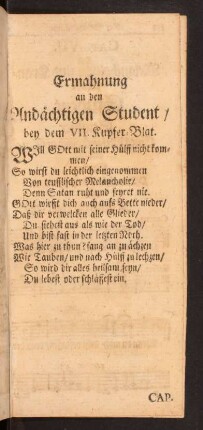 Ermahnung
an den
Andächtigen Student /
bey dem VII. Kupfer-Blat.
Will GOtt mit seiner Hülff nicht kom-
men /
So wirst du leichtlich eingenommen
Von teufflischer Melancholie /
Denn Satan ruht und feyret nie.
GOtt wirfft dich auch aufs Bette nieder /
Daß dir verwelcken alle Glieder /
Du siehest aus als wie der Tod /
Und bist fast in der letzten Noth.
Was hier zu thun? fang an zu ächzen
Wie Tauben / und nach Hülff zu lechzen /
So wird dir alles heilsam seyn /
Du lebest oder schläffest ein.
CAP.